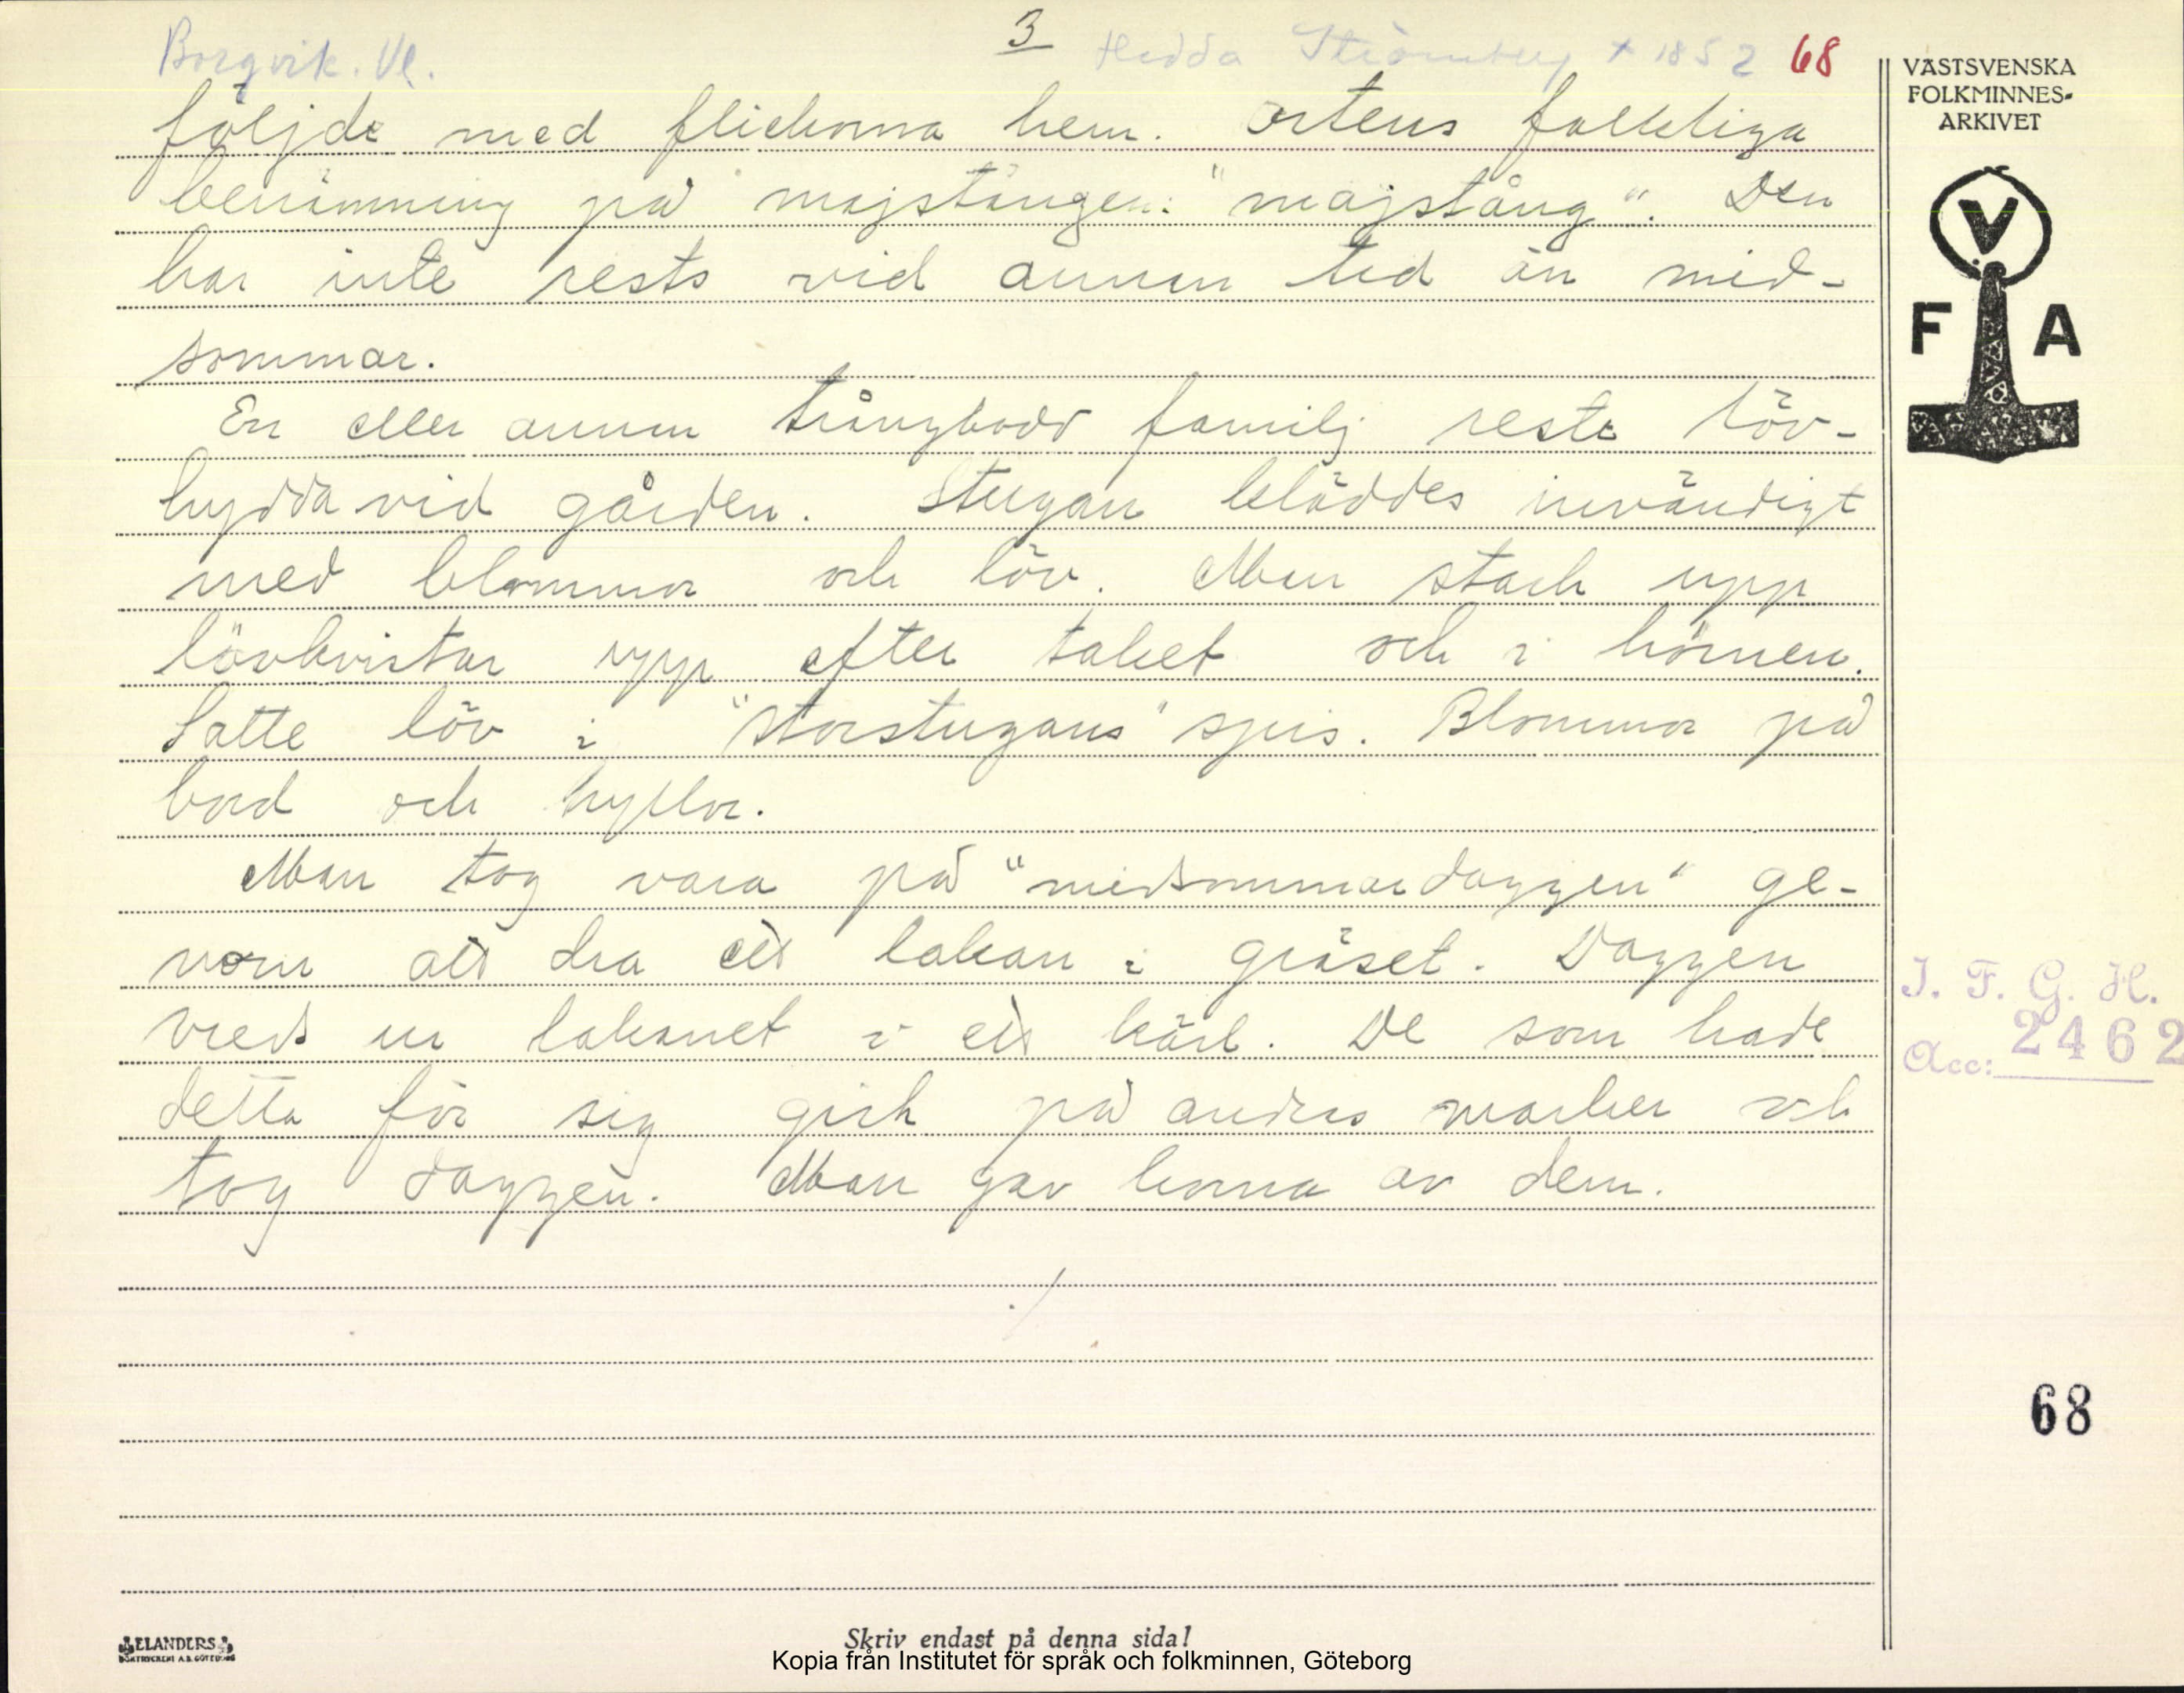 Borgvik. Vl. 3 Hedda Strömberg + 1852 68
följde med flickorna hem. Ortens folkliga
benämning på majstången: "majstång". Den
har inte rests vid annan tid än mid-
sommar.
En eller annan trångbodd familj reste löv-
hydda vid gården. Stugan kläddes invändigt
med blommor och löv. Man stack upp
lövkvistar upp efter taket och i hörnen.
Satte löv i "storstugans" spis. Blommor på
bord och hyllor.
Man tog vara på "midsommardaggen" ge-
nom att dra ett lakan i gräset. Daggen
vreds ur lakanet i ett kärl. De som hade
detta för sig gick på andras marker och
tog daggen. Man gav korna av dem.
./
VÄSTSVENSKA
FOLKMINNES-
ARKIVET
V
F A
I. F. G. H.
Acc: 2462
68
ELANDERS
BOKTRYCKERI A.B. GÖTEBORG
Skriv endast på denna sida!
Kopia från Institutet för språk och folkminnen, Göteborg